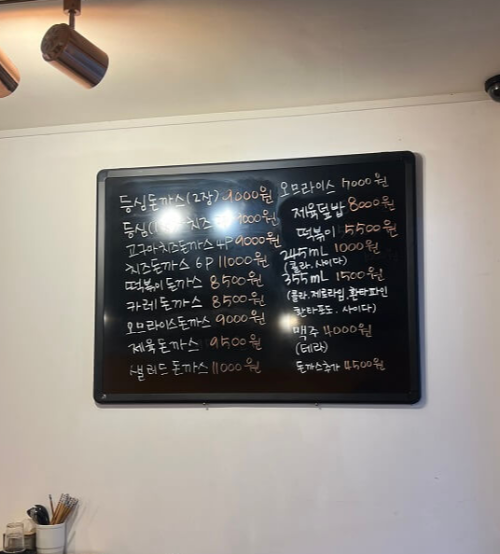 등심돈까스(2장) 9000원
등심( 치즈 9000원
고구마치즈돈까스 4P 9000원
치즈돈까스 6P 11000원
떡볶이돈까스 8500원
카레돈까스 8500원
오므라이스돈까스 9000원
제육돈까스 9500원
샐러드돈까스 11000원
오므라이스 7000원
제육덮밥 8000원
떡볶이 5500원
245mL 1000원
(콜라.사이다)
355mL 1500원
(콜라.제로라임.환타파인
환타포도.사이다)
맥주 4000원
(테라)
돈까스추가 4500원